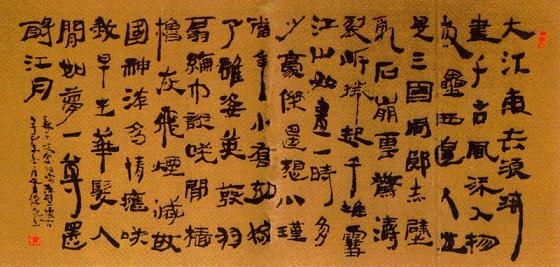 大江東去浪淘
盡千古風流人物
故壘西邊人道
是三國周郎赤壁
亂石崩雲驚濤
裂岸捲起千堆雪
江山如畫一時多
少豪傑遙想公瑾
當年小喬初嫁
了雄姿英發羽
扇綸巾談笑間檣
櫓灰飛煙滅故
國神遊多情應笑
我早生華髮人
間如夢一尊還
酹江月